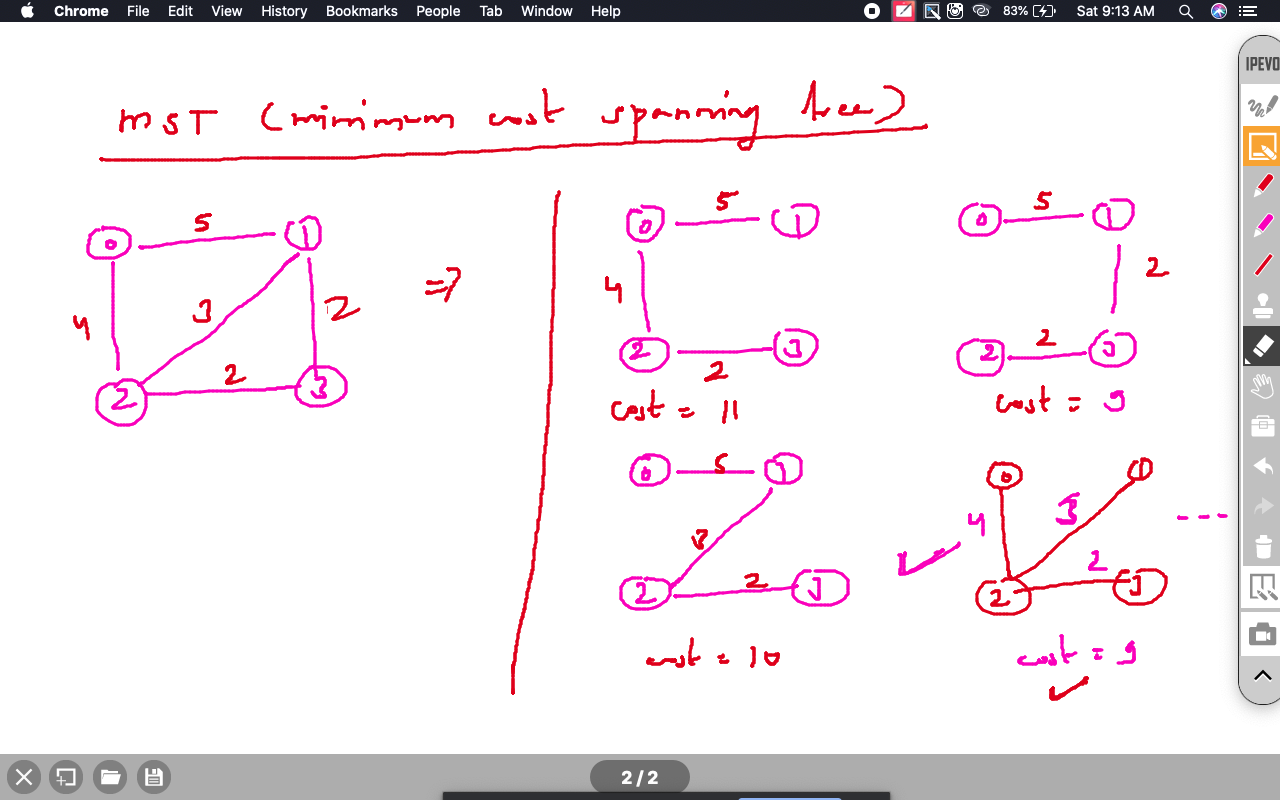 Chrome File Edit View History Bookmarks People Tab Window Help 83% Sat 9:13 AM
IPEVO
MST (minimum cost spanning tree)
0 5 1
4 3 2
2 2 3
=>
0 5 1
4
2 2 3
cost = 11
0 5 1
2
2 2 3
cost = 9
0 5 1
3
2 2 3
cost = 10
0 1
4 3
2 2 3
cost = 9
2 / 2